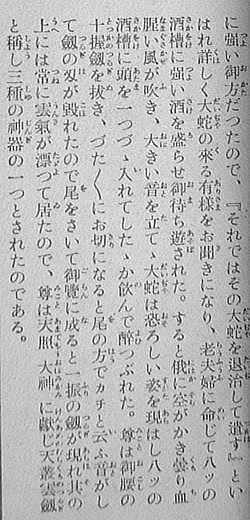 に強い御方だつたので、『それではその大蛇を退治して遣す』とい
はれ詳しく大蛇の來る有樣をお聞きになり、老夫婦に命じて八ツの
酒槽に強い酒を盛らせ御待ち遊された。すると俄に空がかき曇り血
腥い風が吹き、大きい音を立てゝ大蛇は恐ろしい姿を現はし八ツの
酒槽に頭を一つづゝ入れてしたゝか飮んで醉つぶれた。尊は御腰の
十握劔を拔き、づた〱にお切になると尾の方でカチと云ふ音がし
て劔の刄が毀れたので尾をさいて御覽に成ると一振の劔が現れ其の
上には常に雲氣が漂つて居たので、尊は天照大神に獻じ天叢雲劔
と稱し三種の神器の一つとされたのである。